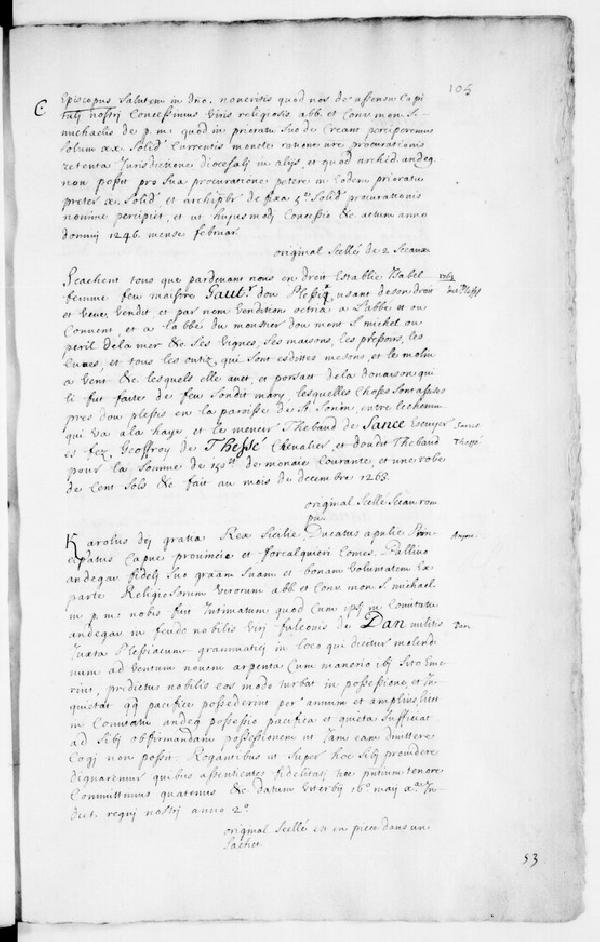 105
C. Episcopus salutem in dno. noveritis quod nos de assensu Capi
tuli nostri Concessimus viris religiosis abb. et Conv. mon. S.
michaelis de p. m. quod in prioratu suo de Creant perciperemus
solum xx. solid. Currentis monete ratione procurationis
retenta Jurisdictione diocesali in alijs, et quod archid. andeg.
non possit pro sua procuratione petere in eodem prioratu
preter x. solid. et archipbr de fixa 5. solid. procurationis
nomine percipiet, et ut hujusmodi Concessio &c actum anno
domini 1246. mense februar.
original scellé de 2 sceaux
Scachent tous que pardevant nous en droit establie Isabel
femme feu maistre Gaut. dou Plesseiz, usant de son droit
et veve, vendit et par nom vendition octria a L'abbé et ou
Convent, et a labbe du monstier dou mont S. michel ou
peril de la mer &c ses vignes, ses maisons, les pressors, les
cuves, et tous les outiz, qui sont esdittes mesons, et le molin
a vent &c lesquels elle avet, et porsaet de la donaison qui
li fut faite de feu sondit mary, lesquelles choses sont assises
pres dou plesses en la paroisse de St. Sonin, entre le chemin
qui va a la haye et le menur Thebaud de Sarice Escuyer Sarice
et fez Geoffroy de Thessé Chevalier, et doudit Thebaud Thessé
pour la somme de de monaie Courante, et une robe
de Cent sols &c fait au mois de decembre 1265.
original scellé sceau rom
pu
Karolus dei gratia Rex Sicilie, Ducatus apulie Prin Anjou
cipatus Capue provincie et forcalquerii Comes. Ballivo
andegav. fideli suo graam suam et bonam voluntatem Ex
parte Religiosorum virorum abb. et Conv. mon. S. michael.
in p. m. nobis fuit intimatum quod Cum ipsi in Comitatu
andegav. in feudo nobilis viri fulconis de Dan militis Dan
Juxta Plessiacum grammatici in loco qui dicitur molendi
num ad ventum novem arpenta Cum manerio ibi sito Eme
rint, predictus nobilis eos modo turbat in possessione et In
quietat qq. pacifice possederint per annum et amplius licet
in Comitatu andeg. possessio pacifica et quieta sufficiat
ad sibi obfirmandam possessionem ut Jam eam dimittere
Cogi non possit. Rogantibus ut super hoc sibi providere
dignaremur quibus assentientes fidelitati hoc pntium tenore
Committimus quatenus &c datum Viterbij 16. maij x. In
dict. regni nostri anno 2.
original scellé est en piece dans un
sachet
53